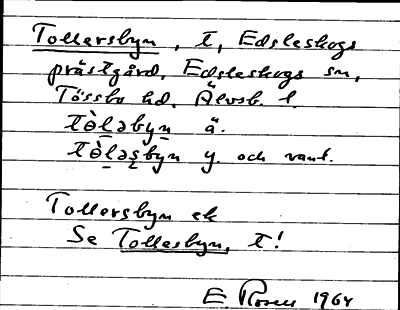 Tollersbyn, t, Edsleskogs
prästgård, Edsleskogs sn,
Tössbo hd. Älvsb. l.
tòləbyn ä.
tòləsbyn y. och vanl.
Tollersbyn ek
Se Tollesbyn, t!
E. Rosell 1964